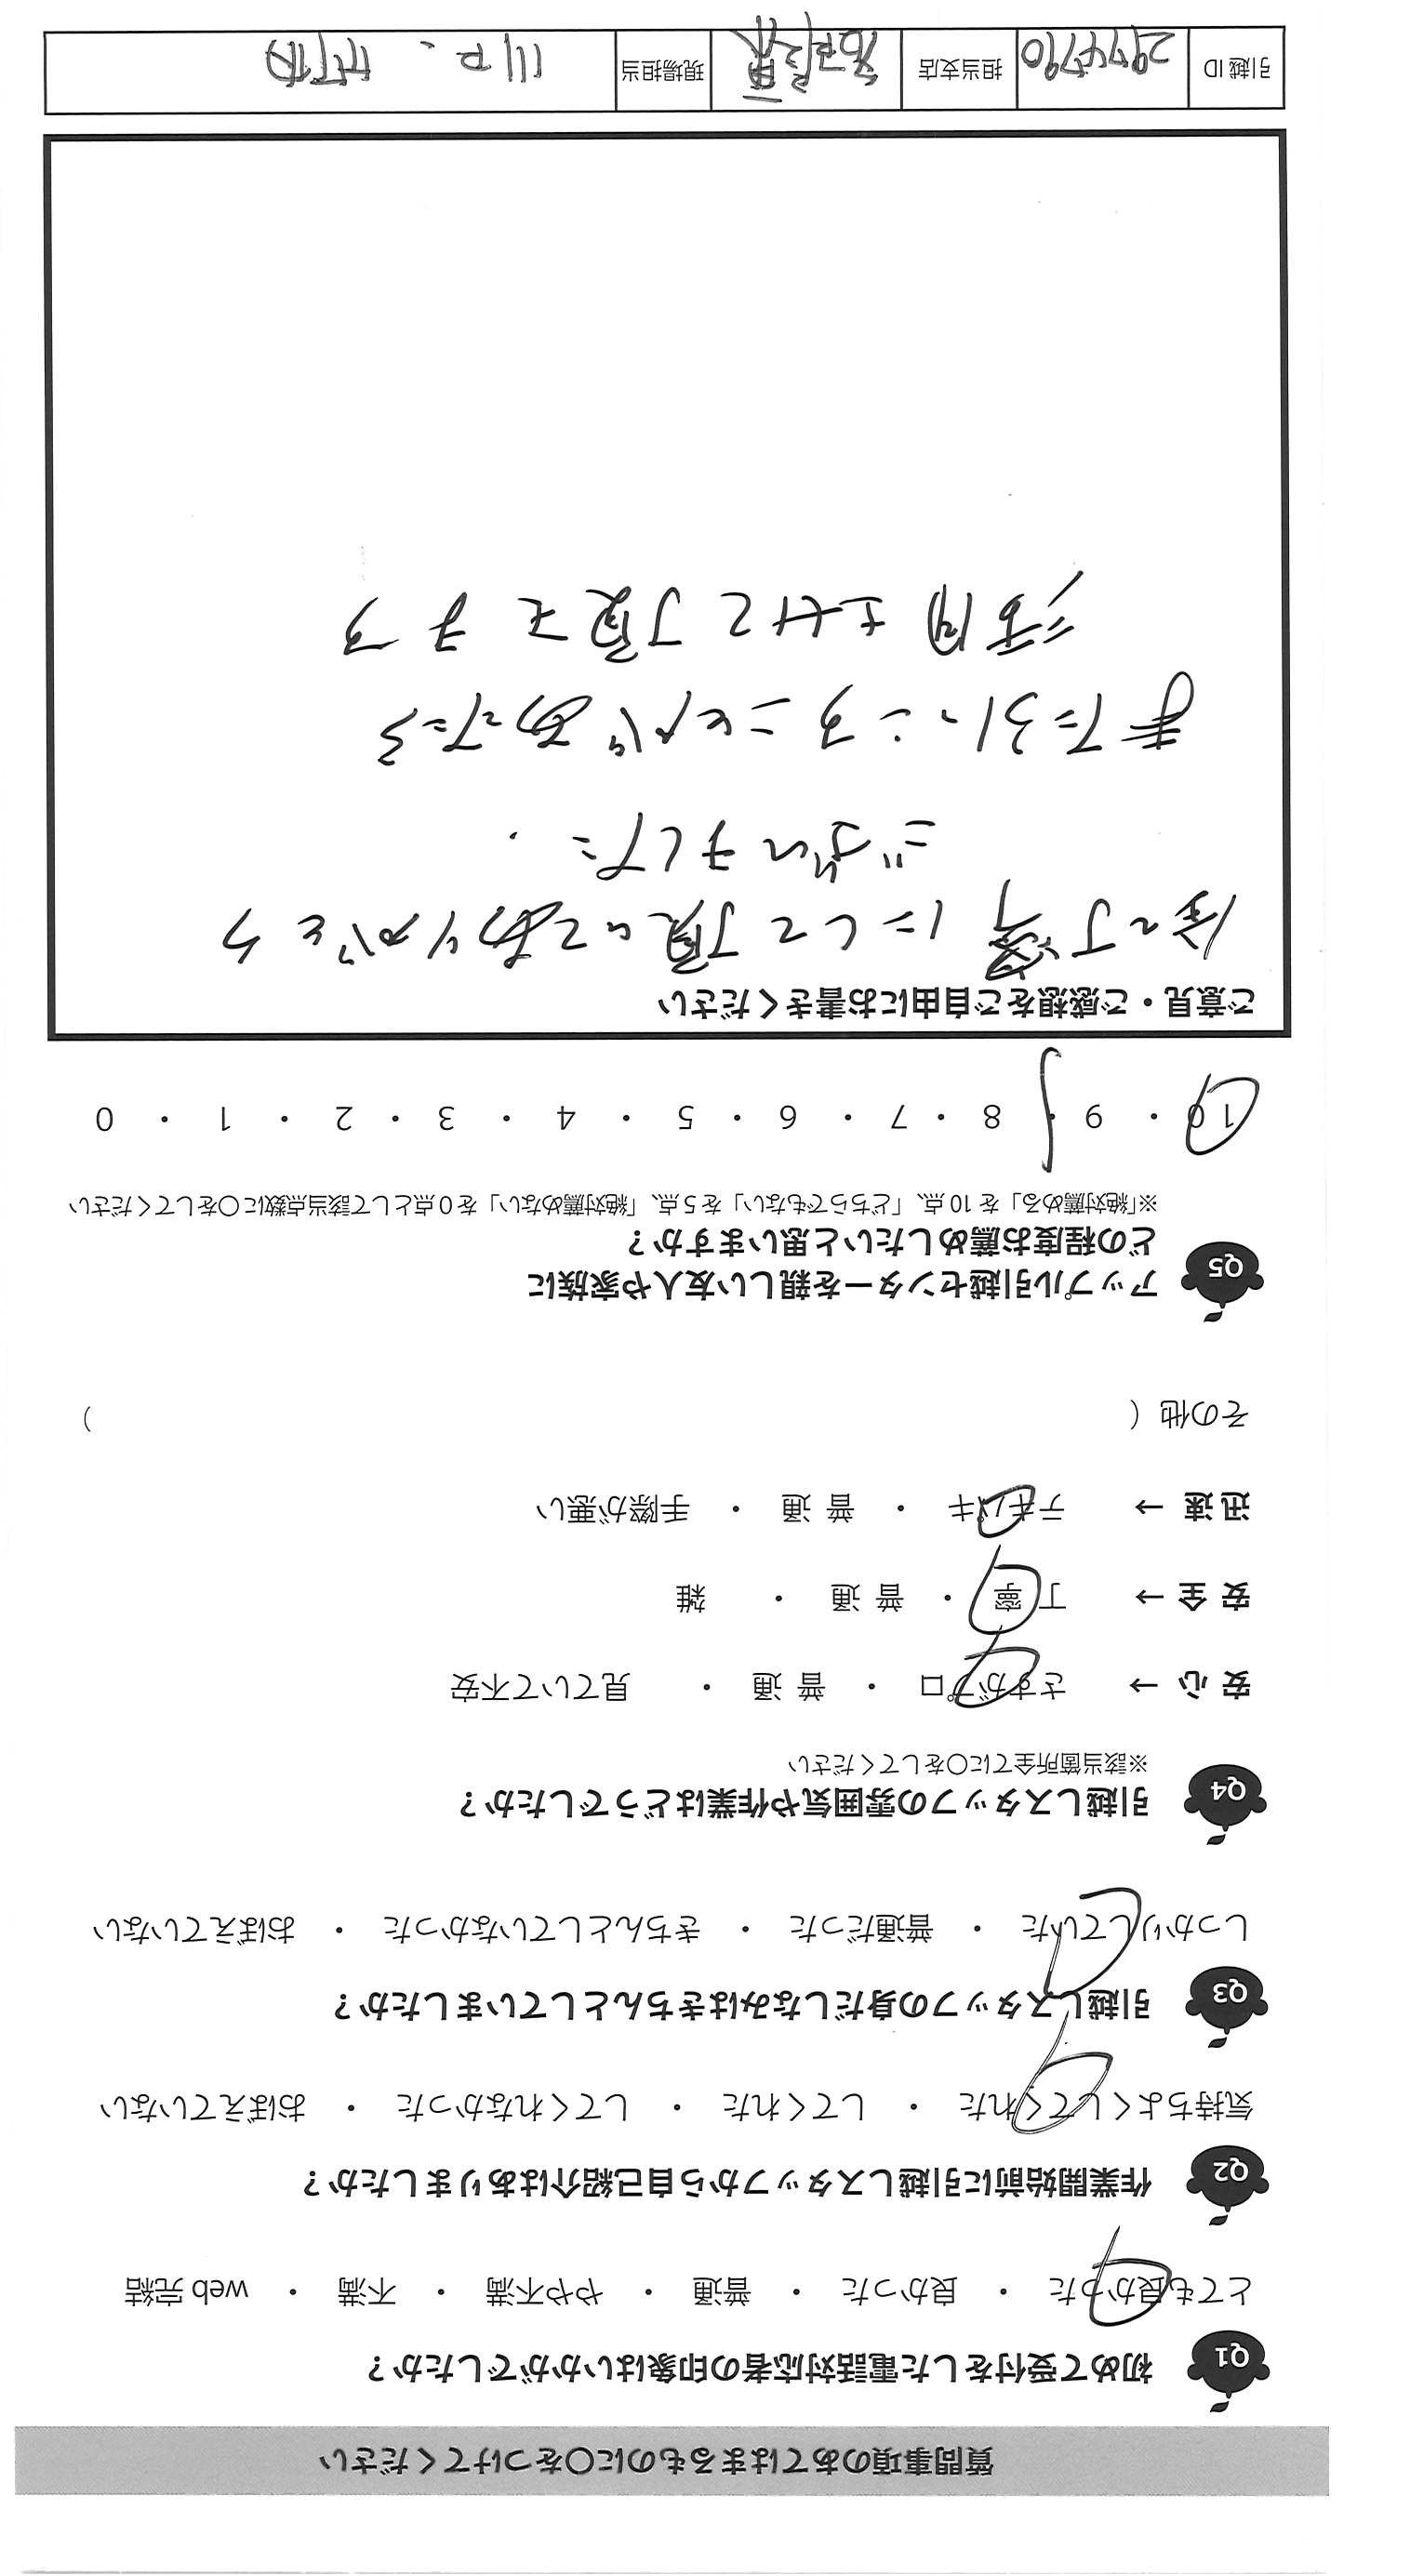 質問事項のあてはまるものに〇をつけてください
Q1 初めて受付をした電話対応者の印象はいかがでしたか？
とても良かった ・ 良かった ・ 普通 ・ やや不満 ・ 不満 ・ web 完結
Q2 作業開始前に引越しスタッフから自己紹介はありましたか？
気持ちよくしてくれた ・ してくれた ・ してくれなかった ・ おぼえていない
Q3 引越しスタッフの身だしなみはきちんとしていましたか？
しっかりしていた ・ 普通だった ・ きちんとしていなかった ・ おぼえていない
Q4 引越しスタッフの雰囲気や作業はどうでしたか？
※該当箇所全てに〇をしてください
安 心 → さすがプロ ・ 普 通 ・ 見ていて不安
安 全 → 丁 寧 ・ 普 通 ・ 雑
迅 速 → テキパキ ・ 普 通 ・ 手際が悪い
その他（ ）
Q5 アップル引越センターを親しい友人や家族に
どの程度お薦めしたいと思いますか？
※「絶対薦める」を 10 点、「どちらでもない」を 5 点、「絶対薦めない」を 0 点として該当点数に〇をしてください
10 ・ 9 ・ 8 ・ 7 ・ 6 ・ 5 ・ 4 ・ 3 ・ 2 ・ 1 ・ 0
ご意見・ご感想をご自由にお書きください
丁寧にして頂いてありがとう
ございました.
また引っこすことがあったら
させて頂きます
引越 ID 2974790 担当支店 現場担当